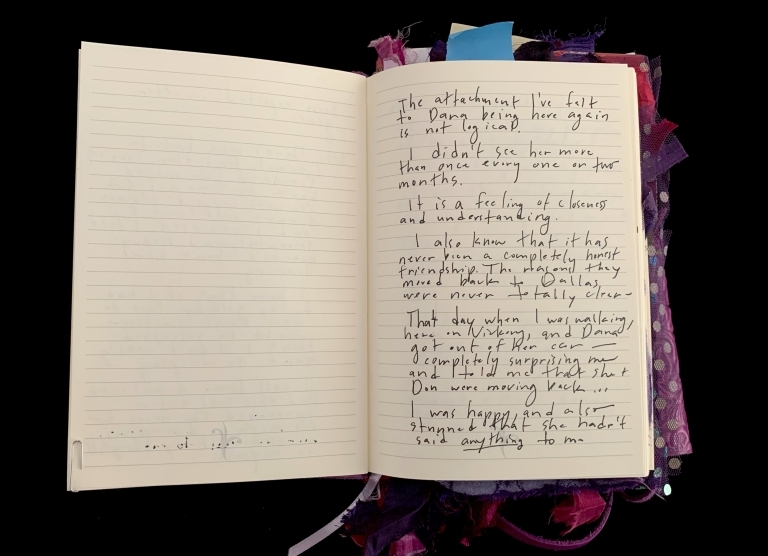 The attachment I've felt
to Dana being here again
is not logical.
I didn't see her more
than once every one or two
months.
It is a feeling of closeness
and understanding.
I also know that it has
never been a completely honest
friendship. The reasons they
moved back to Dallas
were never totally clear-
That day when I was walking,
here on, and Dana,
got out of her car —
completely surprising me
and told me that she +
Don were moving back ...
I was happy, and also
stunned that she hadn't
said anything to me